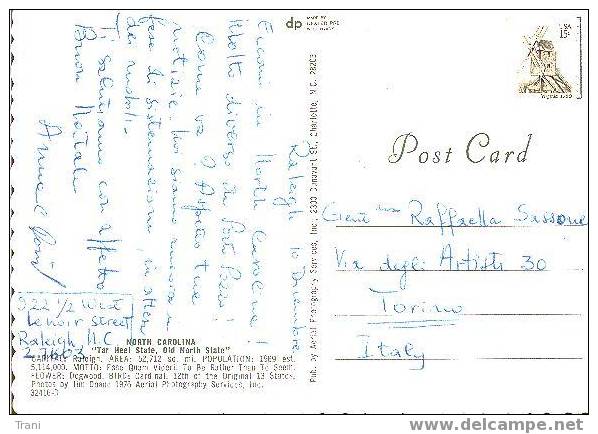 Raleigh 10 Dicembre
Eccomi in North Carolina!
Molto diverso da Porto
Come va? Aspetto tue
notizie. Noi siamo ancora in
fase di sistemazione, in attesa
dei mobili.
Ti salutiamo con affetto
Buon Natale
922 1/2 West
Lenoir Street
Raleigh, N.C.
27603
NORTH CAROLINA
"Tar Heel State, Old North State"
CAPITAL: Raleigh. AREA: 52,712 sq. mi. POPULATION: 1969 est.
5,114,000. MOTTO: Esse Quam Videri. To Be Rather Than To Seem.
FLOWER: Dogwood. BIRD: Cardinal. 12th of the Original 13 States.
Photos by Jim Doane 1976 Aerial Photography Services, Inc.
dp
MADE BY
DEXTER PRESS
Pub. by Aerial Photography Services, Inc., 2300 Dunavant St., Charlotte, N.C. 28203
USA
15c
Virginia 1720
Post Card
Raffaella Sassone
Via degli Artisti 30
Torino
Italy
delcampe.net